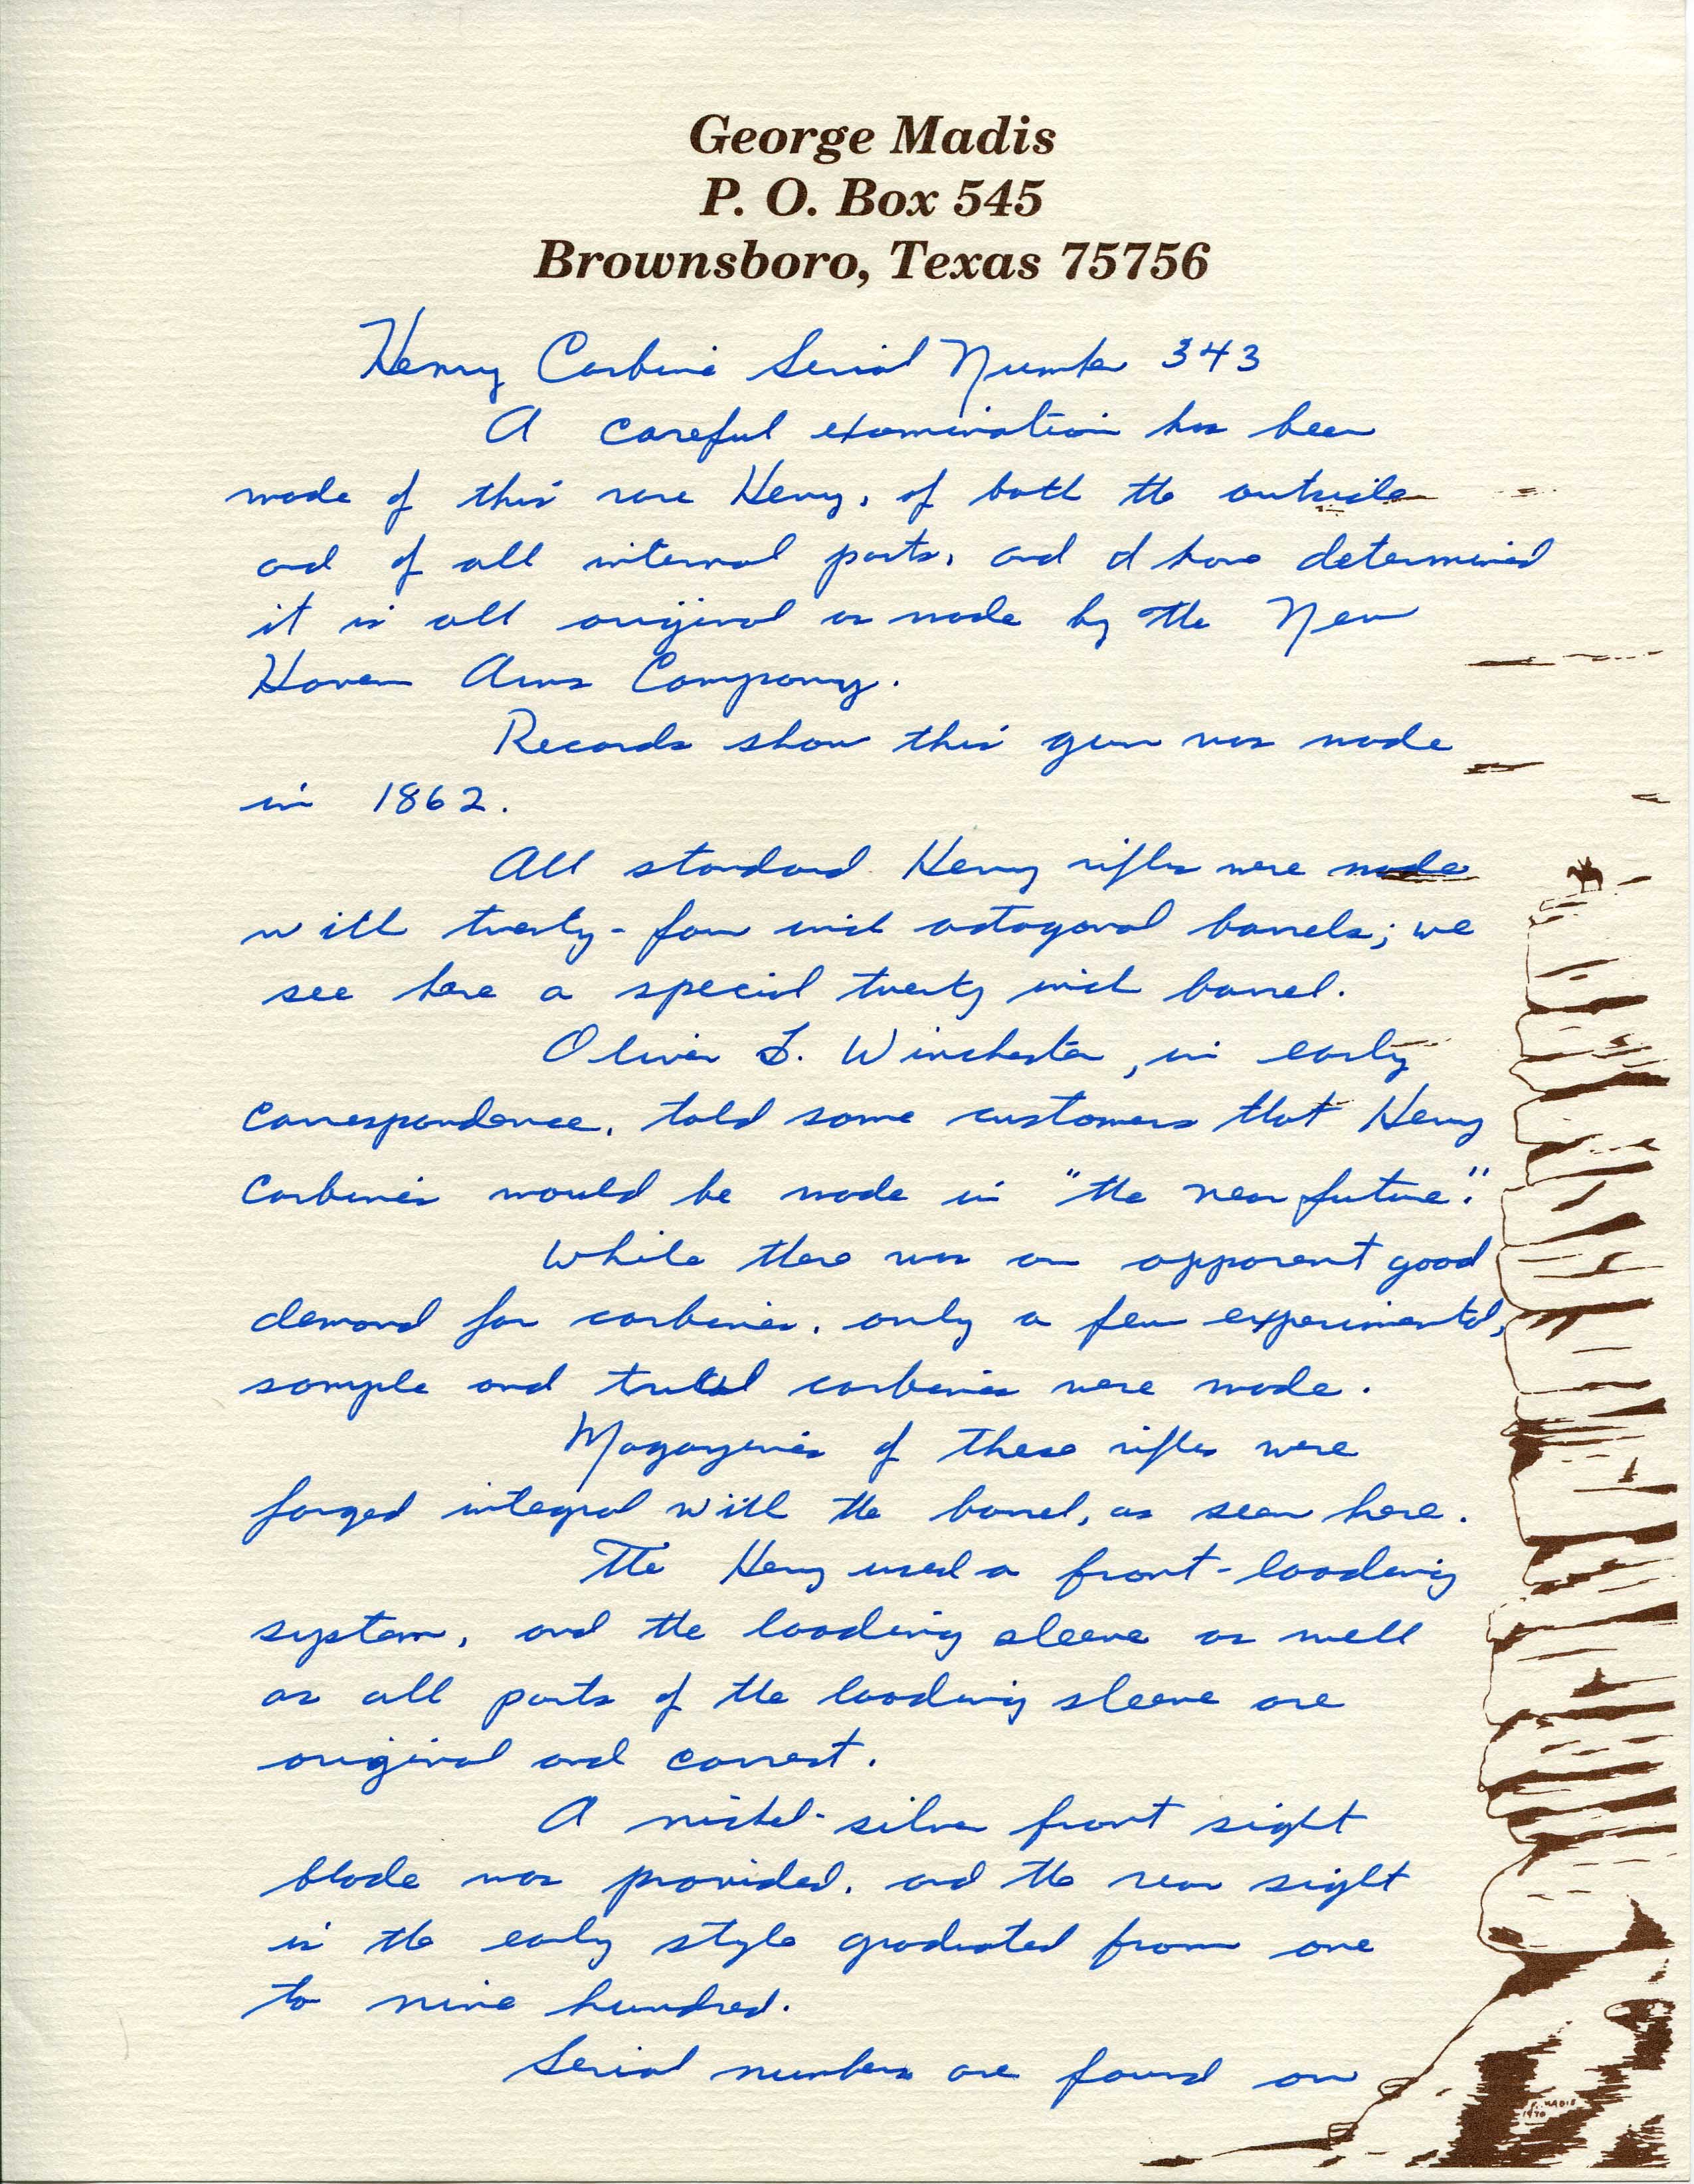 George Madis
P. O. Box 545
Brownsboro, Texas 75756
Henry Carbine Serial Number 343
A careful examination has been
made of this rare Henry, of both the outside
and of all internal parts, and I have determined
it is all original as made by the New
Haven Arms Company.
Records show this gun was made
in 1862.
All standard Henry rifles were made
with twenty-four inch octagonal barrels; we
see here a special twenty inch barrel.
Oliver F. Winchester, in early
correspondence, told some customers that Henry
Carbines would be made in "the near future."
While there was an apparent good
demand for carbines, only a few experimental,
sample and trial carbines were made.
Magazines of these rifles were
forged integral with the barrel, as seen here.
The Henry used a front-loading
system, and the loading sleeve as well
as all parts of the loading sleeve are
original and correct.
A nickel-silver front sight
blade was provided, and the rear sight
is the early style graduated from one
to nine hundred.
Serial numbers are found on
G. MADIS
1970